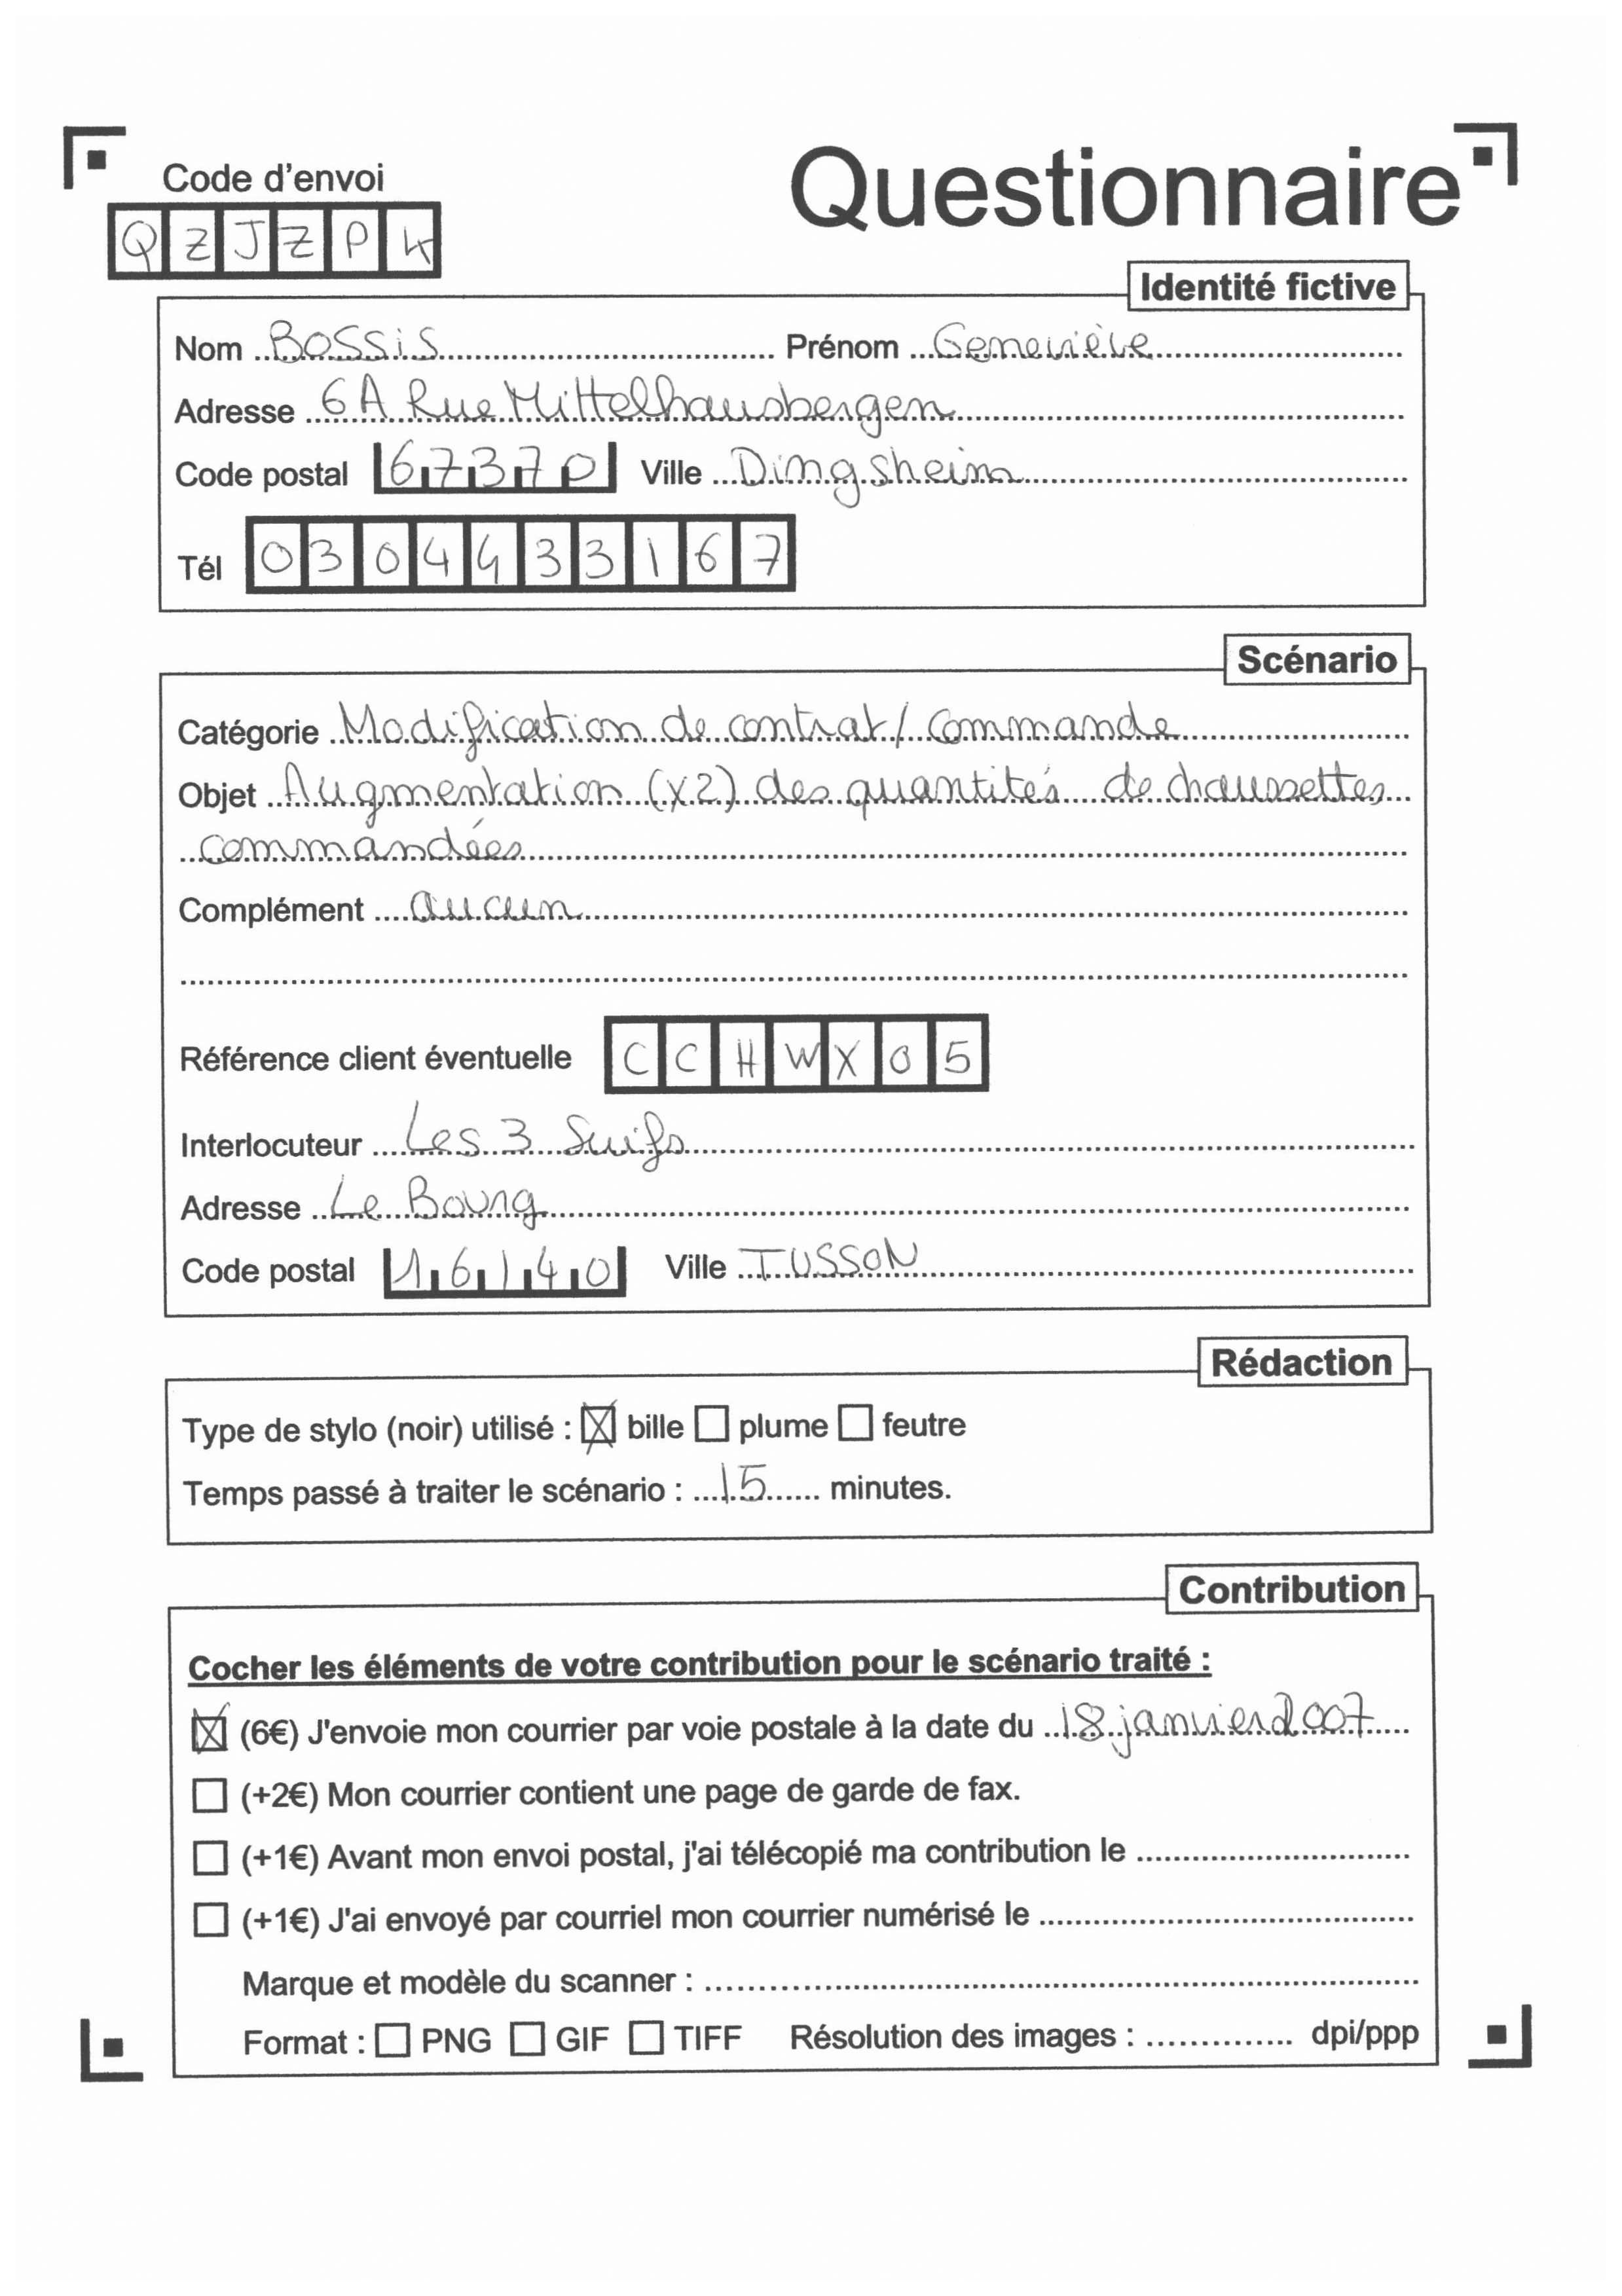 Questionnaire
Code d'envoi
QZJZPK
Identité fictive
Nom Bossis Prénom Geneviève
Adresse 6A Rue Mittelhausbergen
Code postal 67370 Ville Dingsheim
Tél 0304433167
Scénario
Catégorie Modification de contrat / Commande
Objet Augmentation (x2) des quantités de chaussettes
commandées
Complément aucun
Référence client éventuelle CCHWX05
Interlocuteur Les 3 Suifs
Adresse Le Bourg
Code postal 16140 Ville TUSSON
Rédaction
Type de stylo (noir) utilisé : ☒ bille ☐ plume ☐ feutre
Temps passé à traiter le scénario : 15 minutes.
Contribution
Cocher les éléments de votre contribution pour le scénario traité :
☒ (6€) J'envoie mon courrier par voie postale à la date du 18 janvier 2007
☐ (+2€) Mon courrier contient une page de garde de fax.
☐ (+1€) Avant mon envoi postal, j'ai télécopié ma contribution le
☐ (+1€) J'ai envoyé par courriel mon courrier numérisé le
Marque et modèle du scanner :
Format : ☐ PNG ☐ GIF ☐ TIFF Résolution des images : dpi/ppp